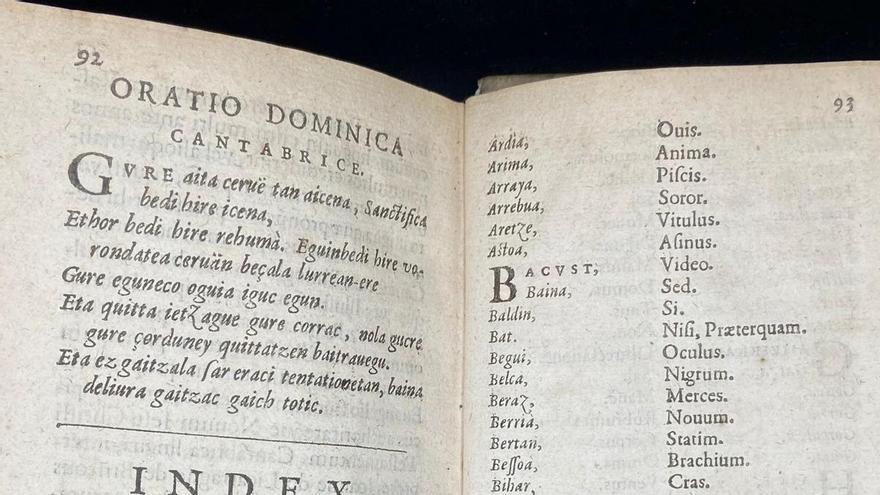 92
ORATIO DOMINICA
CANTABRICE.
GVRE aita ceruë tan aicena, Sanctifica
bedi hire icena,
Ethor bedi hire rehumà. Eguinbedi hire vo-
rondatea ceruän beçala lurrean-ere
Gure eguneco oguia iguc egun.
Eta quitta ietzague gure corrac, nola gucre
gure çorduney quittatzen baitrauegu.
Eta ez gaitzala ſar eraci tentationetan, baina
deliura gaitzac gaich totic.
INDEX
93
Ardia, Ouis.
Arima, Anima.
Arraya, Piſcis.
Arrebua, Soror.
Aretze, Vitulus.
Aſtoa, Aſinus.
BACVST, Video.
Baina, Sed.
Baldin, Si.
Bat. Niſi, Præterquam.
Begui, Oculus.
Belca, Nigrum.
Beraz, Merces.
Berria, Nouum.
Bertan, Statim.
Beſſoa, Brachium.
Bihar, Cras.